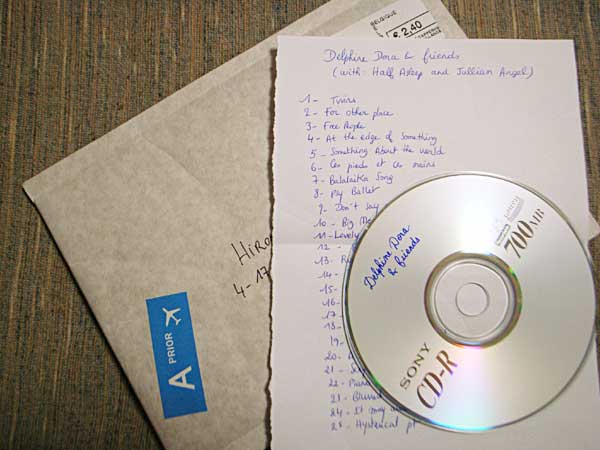 BELGIQUE
€ 2,40
A PRIOR
HIRO
4-17
Delphine Dora & friends
(with: Half Asleep and Jullian Angel)
1- Twins
2- For other place
3- Free People
4- At the edge of something
5- Something About the world
6- Ces pieds et ces mains
7- Balalaika Song
8- My Ballet
9- Don't say
10- Big
11- Lovely
12-
13-
14-
15-
16-
17-
18-
19-
20-
21-
22-
23- Blurred
24- It may
25- Hysterical
Delphine Dora
& friends
SONY
CD-R
700MB